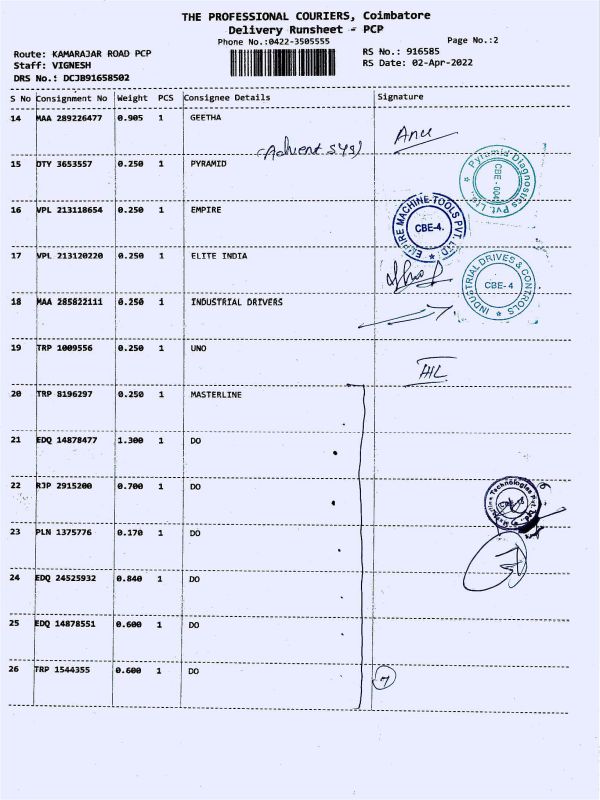 THE PROFESSIONAL COURIERS, Coimbatore
Delivery Runsheet - PCP
Phone No.:0422-3505555
Page No.:2
Route: KAMARAJAR ROAD PCP
RS No.: 916585
Staff: VIGNESH
RS Date: 02-Apr-2022
DRS No.: DCJB91658502
S No Consignment No Weight PCS Consignee Details Signature
14 MAA 289226477 0.905 1 GEETHA
Anu
(Advent sys)
15 DTY 3653557 0.250 1 PYRAMID
Pyramid Diagnostics Pvt. Ltd. CBE - 004
16 VPL 213118654 0.250 1 EMPIRE
EMPIRE MACHINE TOOLS PVT. LTD. CBE-4.
17 VPL 213120220 0.250 1 ELITE INDIA
INDUSTRIAL DRIVES & CONTROLS CBE-4
18 MAA 285822111 0.250 1 INDUSTRIAL DRIVERS
19 TRP 1009556 0.250 1 UNO
20 TRP 8196297 0.250 1 MASTERLINE
21 EDQ 14878477 1.300 1 DO
22 RJP 2915200 0.700 1 DO
Technologies Pvt. Ltd
23 PLN 1375776 0.170 1 DO
24 EDQ 24525932 0.840 1 DO
25 EDQ 14878551 0.600 1 DO
26 TRP 1544355 0.600 1 DO
7